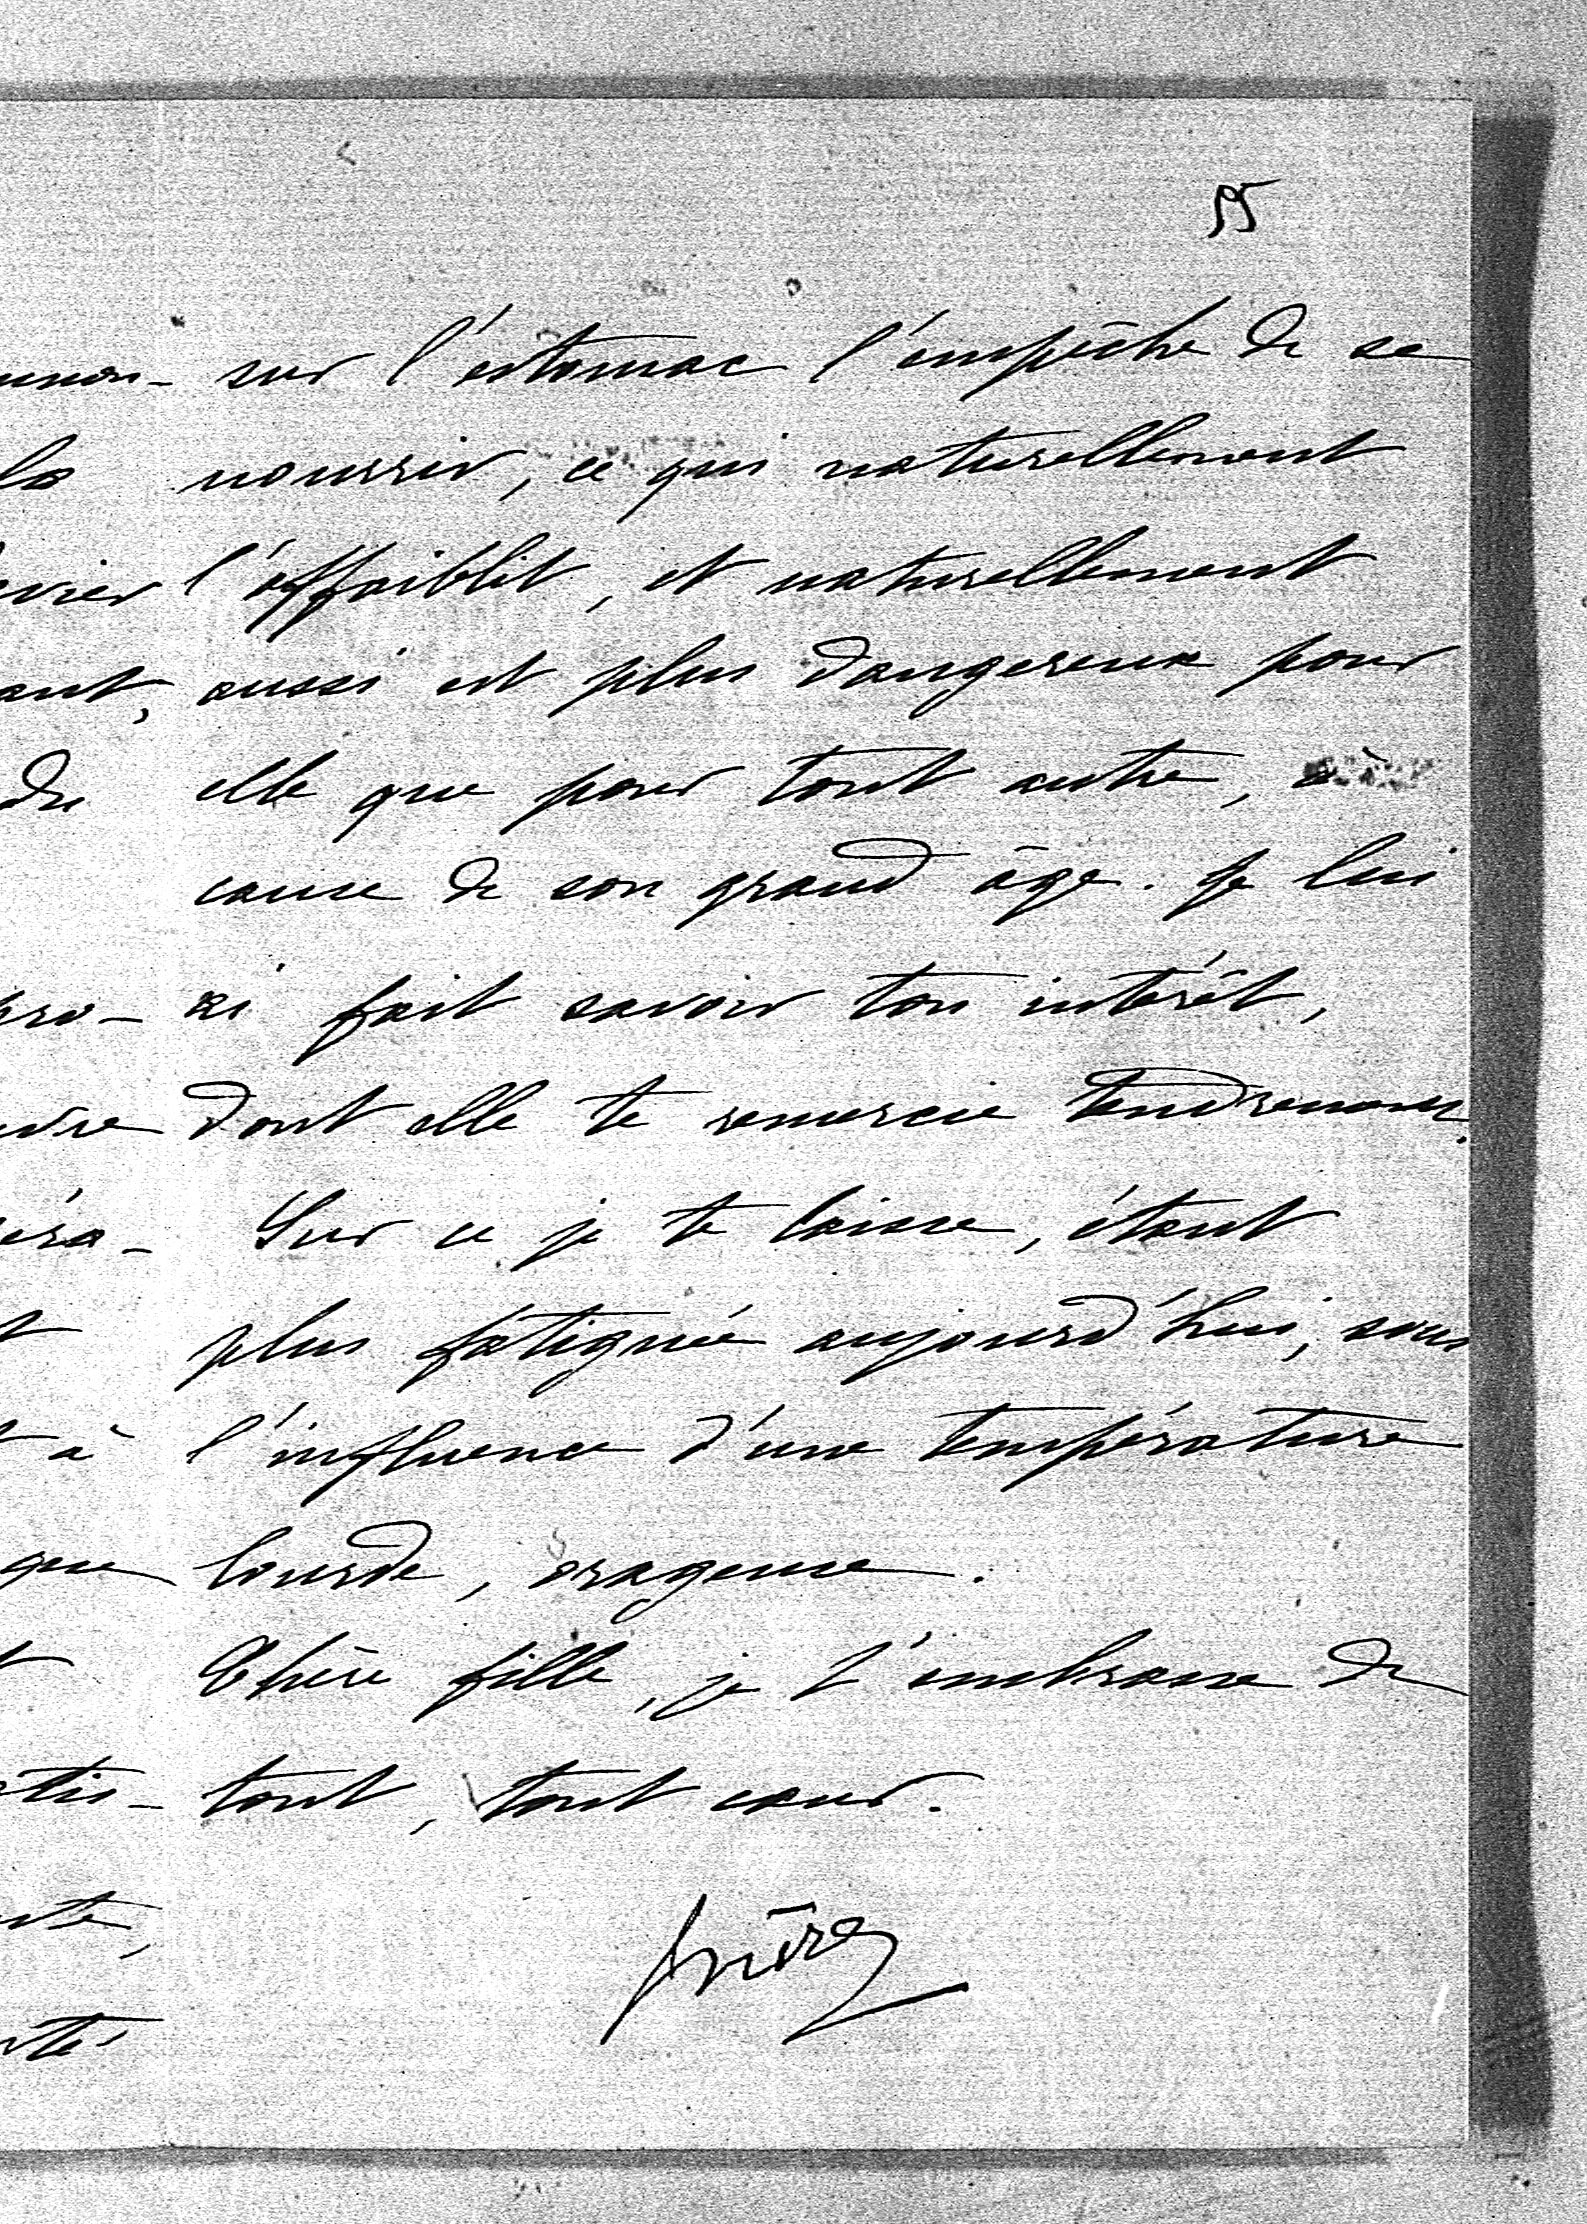 55
sur l'estomac l'empêche de se
nourrir, ce qui naturellement
l'affaiblit, et naturellement
aussi est plus dangereux pour
elle que pour tout autre, à
cause de son grand âge. Je lui
ai fait savoir ton intérêt,
dont elle te remercie tendrement.
Sur ce je te laisse, étant
plus fatiguée aujourd'hui, sous
l'influence d'une température
lourde, orageuse.
Chère fille, je t'embrasse de
tout, tout cœur.